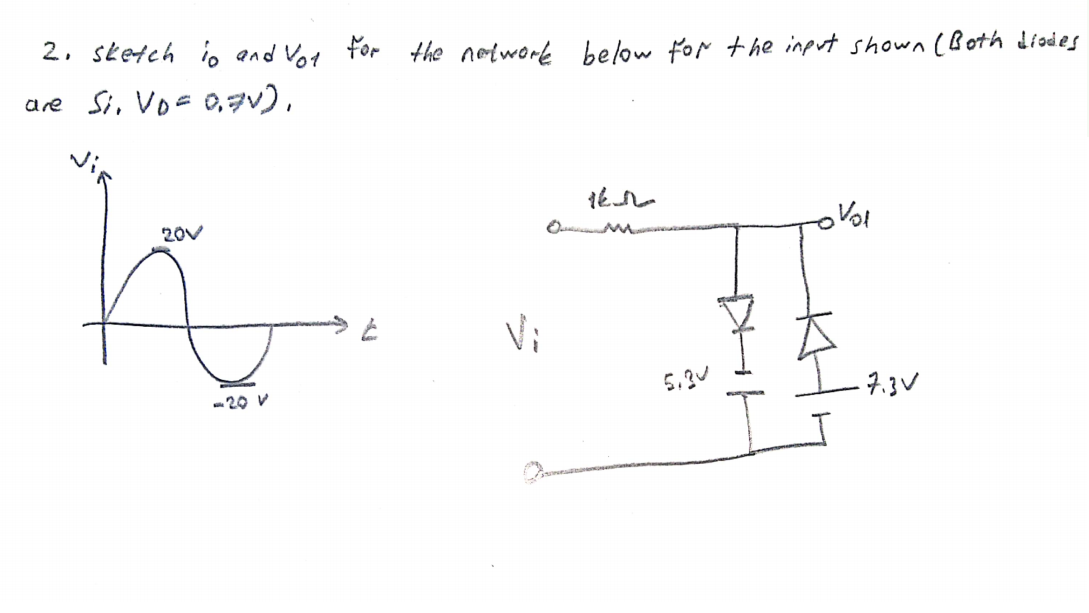 2. sketch io and Vo1 for the network below for the input shown (Both diodes
are Si, VD = 0.7V).
Vi
20V
t
-20 V
1kΩ
Vo1
Vi
5.3V
7.3V